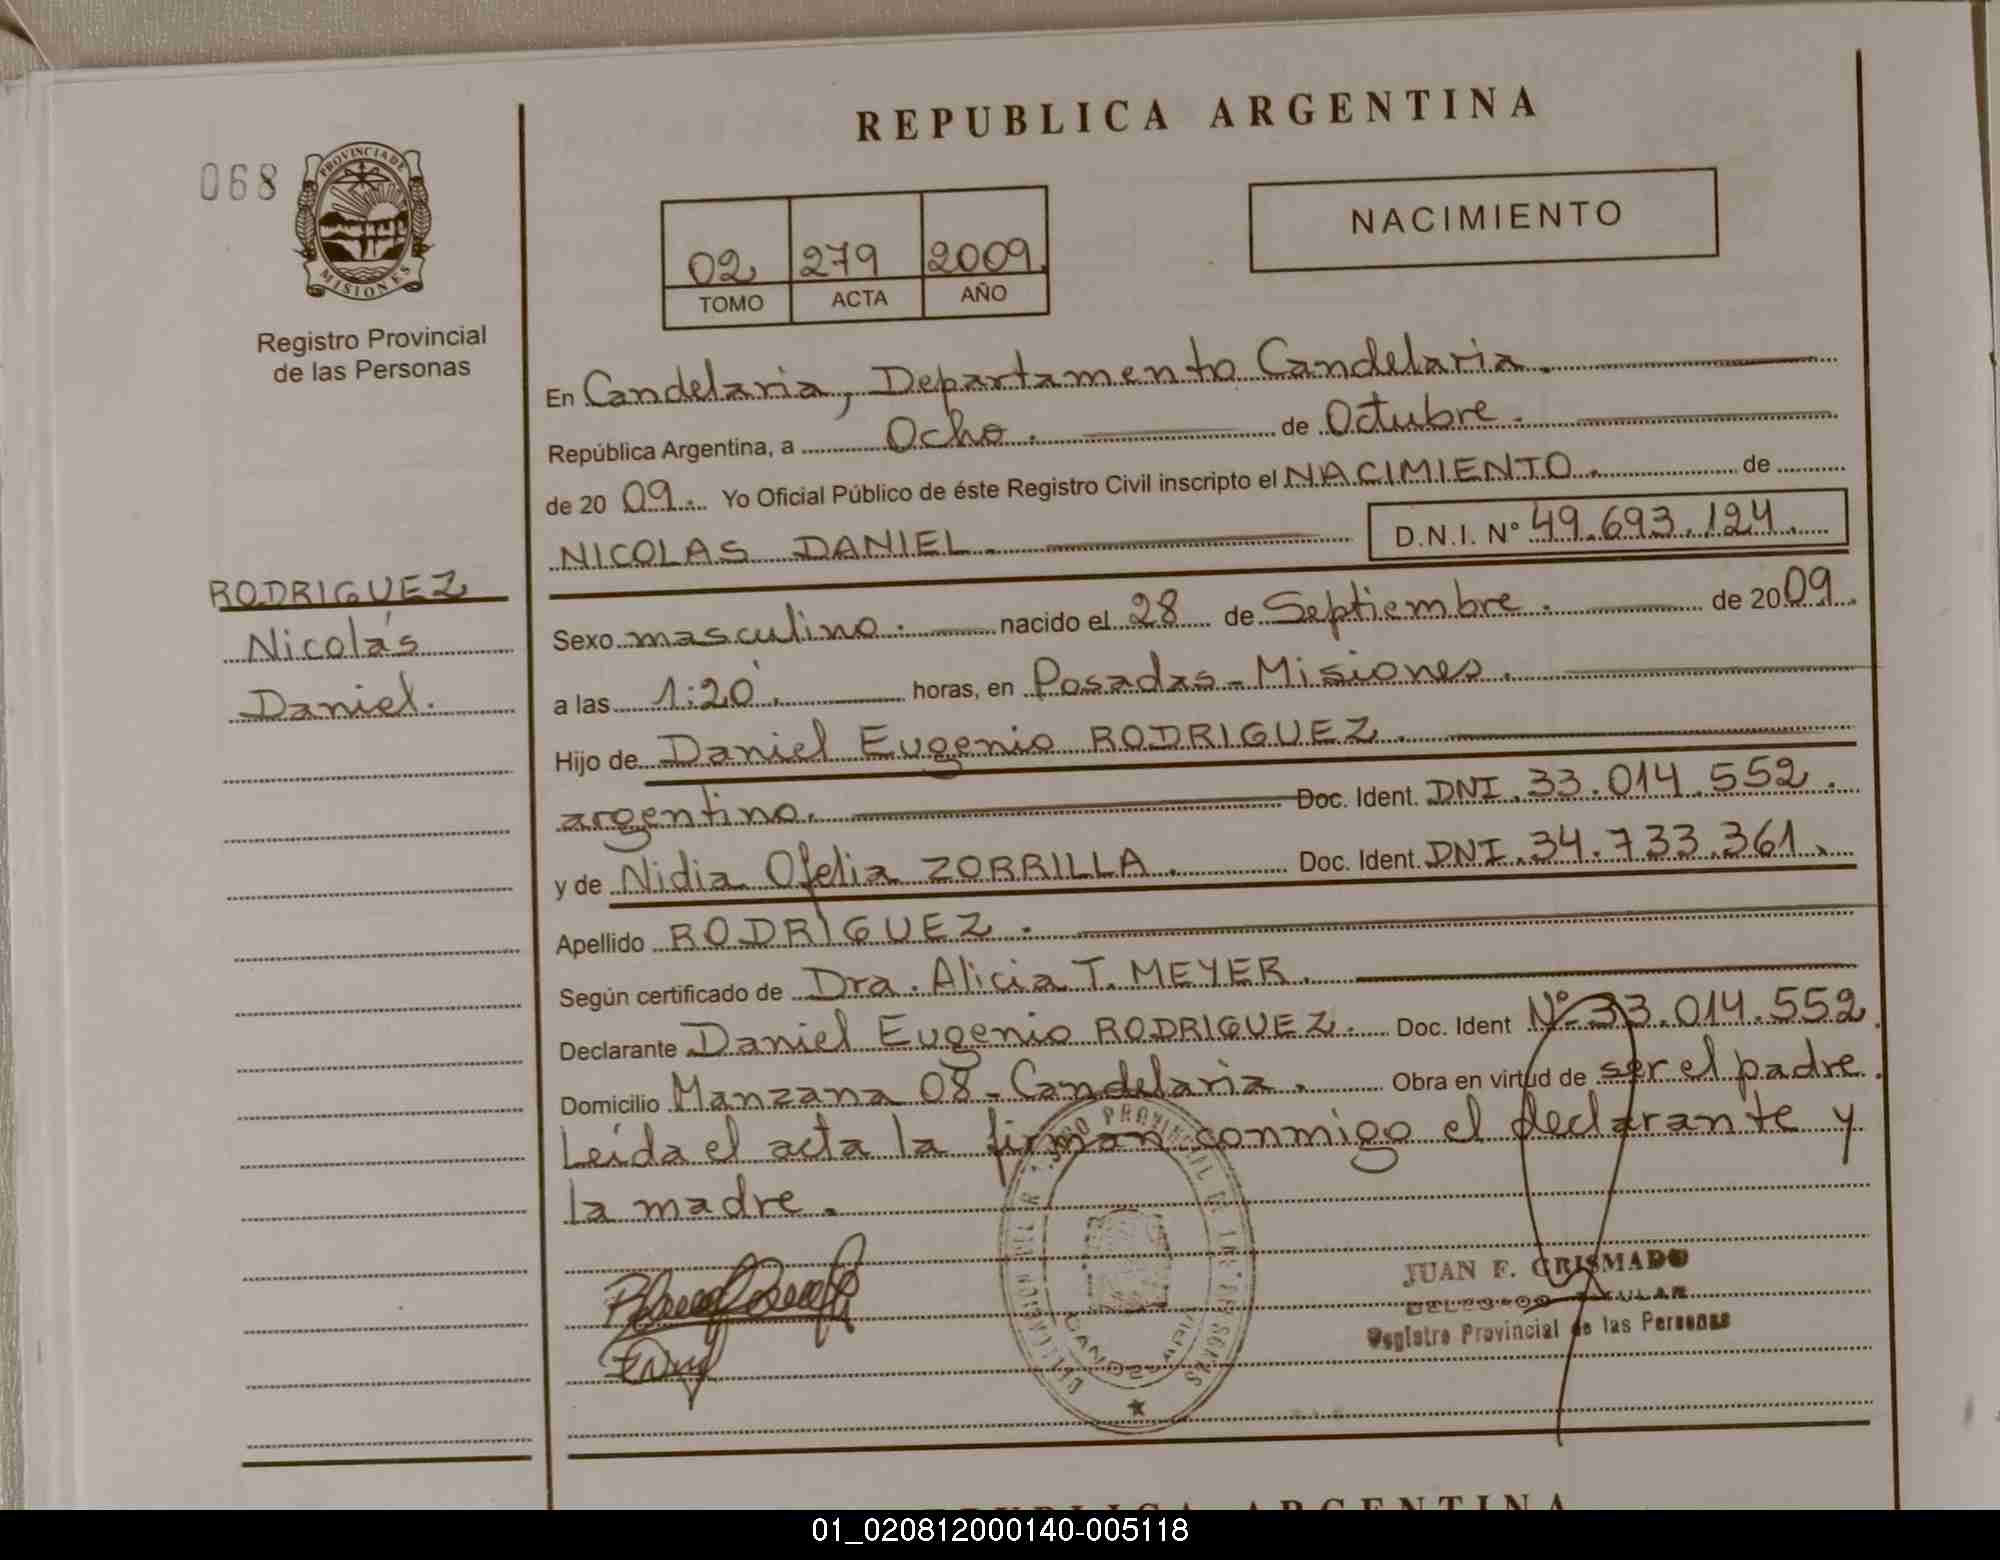 REPUBLICA ARGENTINA
068
PROVINCIA DE
MISIONES
Registro Provincial
de las Personas
NACIMIENTO
02 279 2009
TOMO ACTA AÑO
En Candelaria, Departamento Candelaria.
República Argentina, a Ocho. de Octubre.
de 20 09. Yo Oficial Público de éste Registro Civil inscripto el NACIMIENTO. de
NICOLAS DANIEL. D.N.I. N° 49.693.124.
RODRIGUEZ
Nicolás
Daniel.
Sexo masculino. nacido el 28 de Septiembre. de 2009.
a las 1:20'. horas, en Posadas-Misiones.
Hijo de Daniel Eugenio RODRIGUEZ.
argentino. Doc. Ident. DNI. 33.014.552.
y de Nidia Ofelia ZORRILLA. Doc. Ident. DNI. 34.733.361.
Apellido RODRIGUEZ.
Según certificado de Dra. Alicia T. MEYER.
Declarante Daniel Eugenio RODRIGUEZ. Doc. Ident N° 33.014.552.
Domicilio Manzana 08-Candelaria. Obra en virtud de ser el padre.
Leída el acta la firman conmigo el declarante y
la madre.
JUAN F. GRISMADO
Registro Provincial de las Personas
REPUBLICA ARGENTINA
01_020812000140-005118